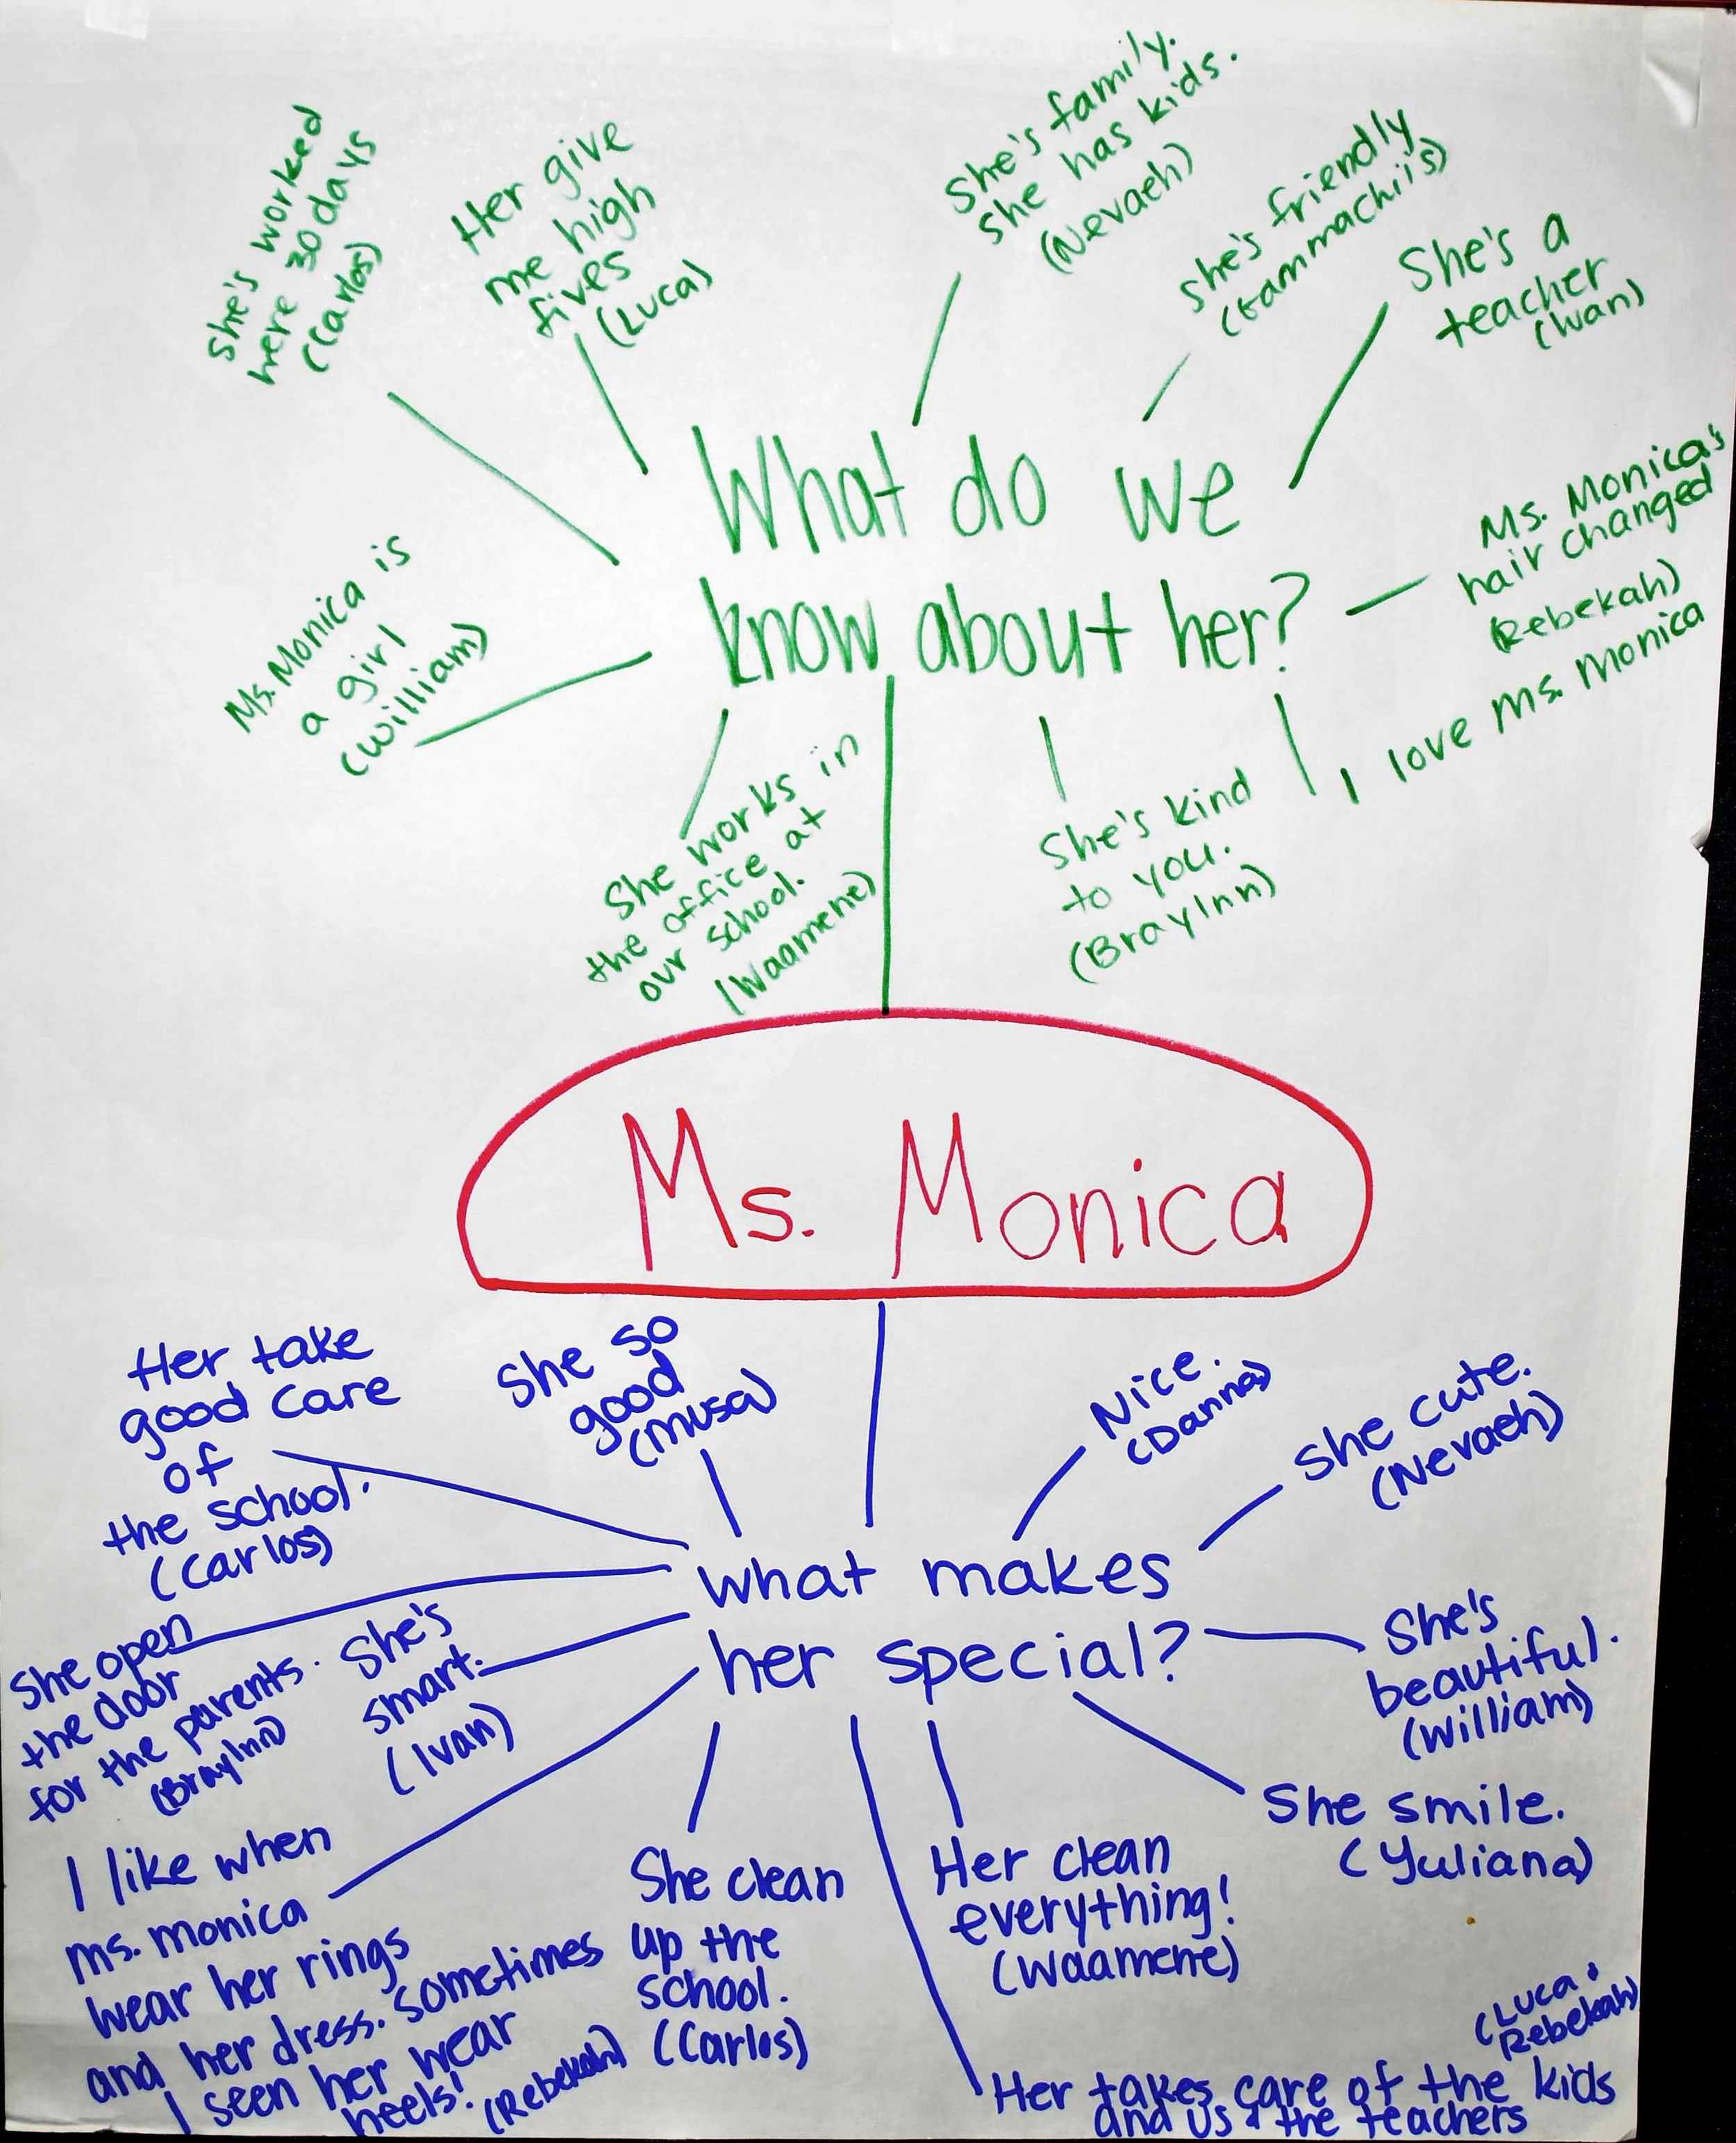 she's worked
here 30 days
(Carlos)
Her give
me high
fives
(Luca)
She's family.
she has kids.
(Nevaeh)
she's friendly
She's a
teacher
(Ivan)
Ms. Monica's
hair changed
(Rebekah)
I love Ms. Monica
What do we
know about her?
Ms. Monica is
a girl
(William)
She works in
the office at
our school.
(Waamene)
She's kind
to you.
(Braylnn)
Ms. Monica
Her take
good care
of
the school.
(Carlos)
She so
good
(Musa)
Nice.
(Danna)
She cute.
(Nevaeh)
what makes
her special?
She open
the door
for the parents.
(Braylnn)
She's
smart.
(Ivan)
She's
beautiful.
(William)
She smile.
(Yuliana)
I like when
ms. monica
wear her rings
and her dress. sometimes
I seen her wear
heels!
(Rebekah)
She clean
up the
school.
(Carlos)
Her clean
everything!
(Waamene)
(Luca &
Rebekah)
Her takes care of the kids
and us & the teachers